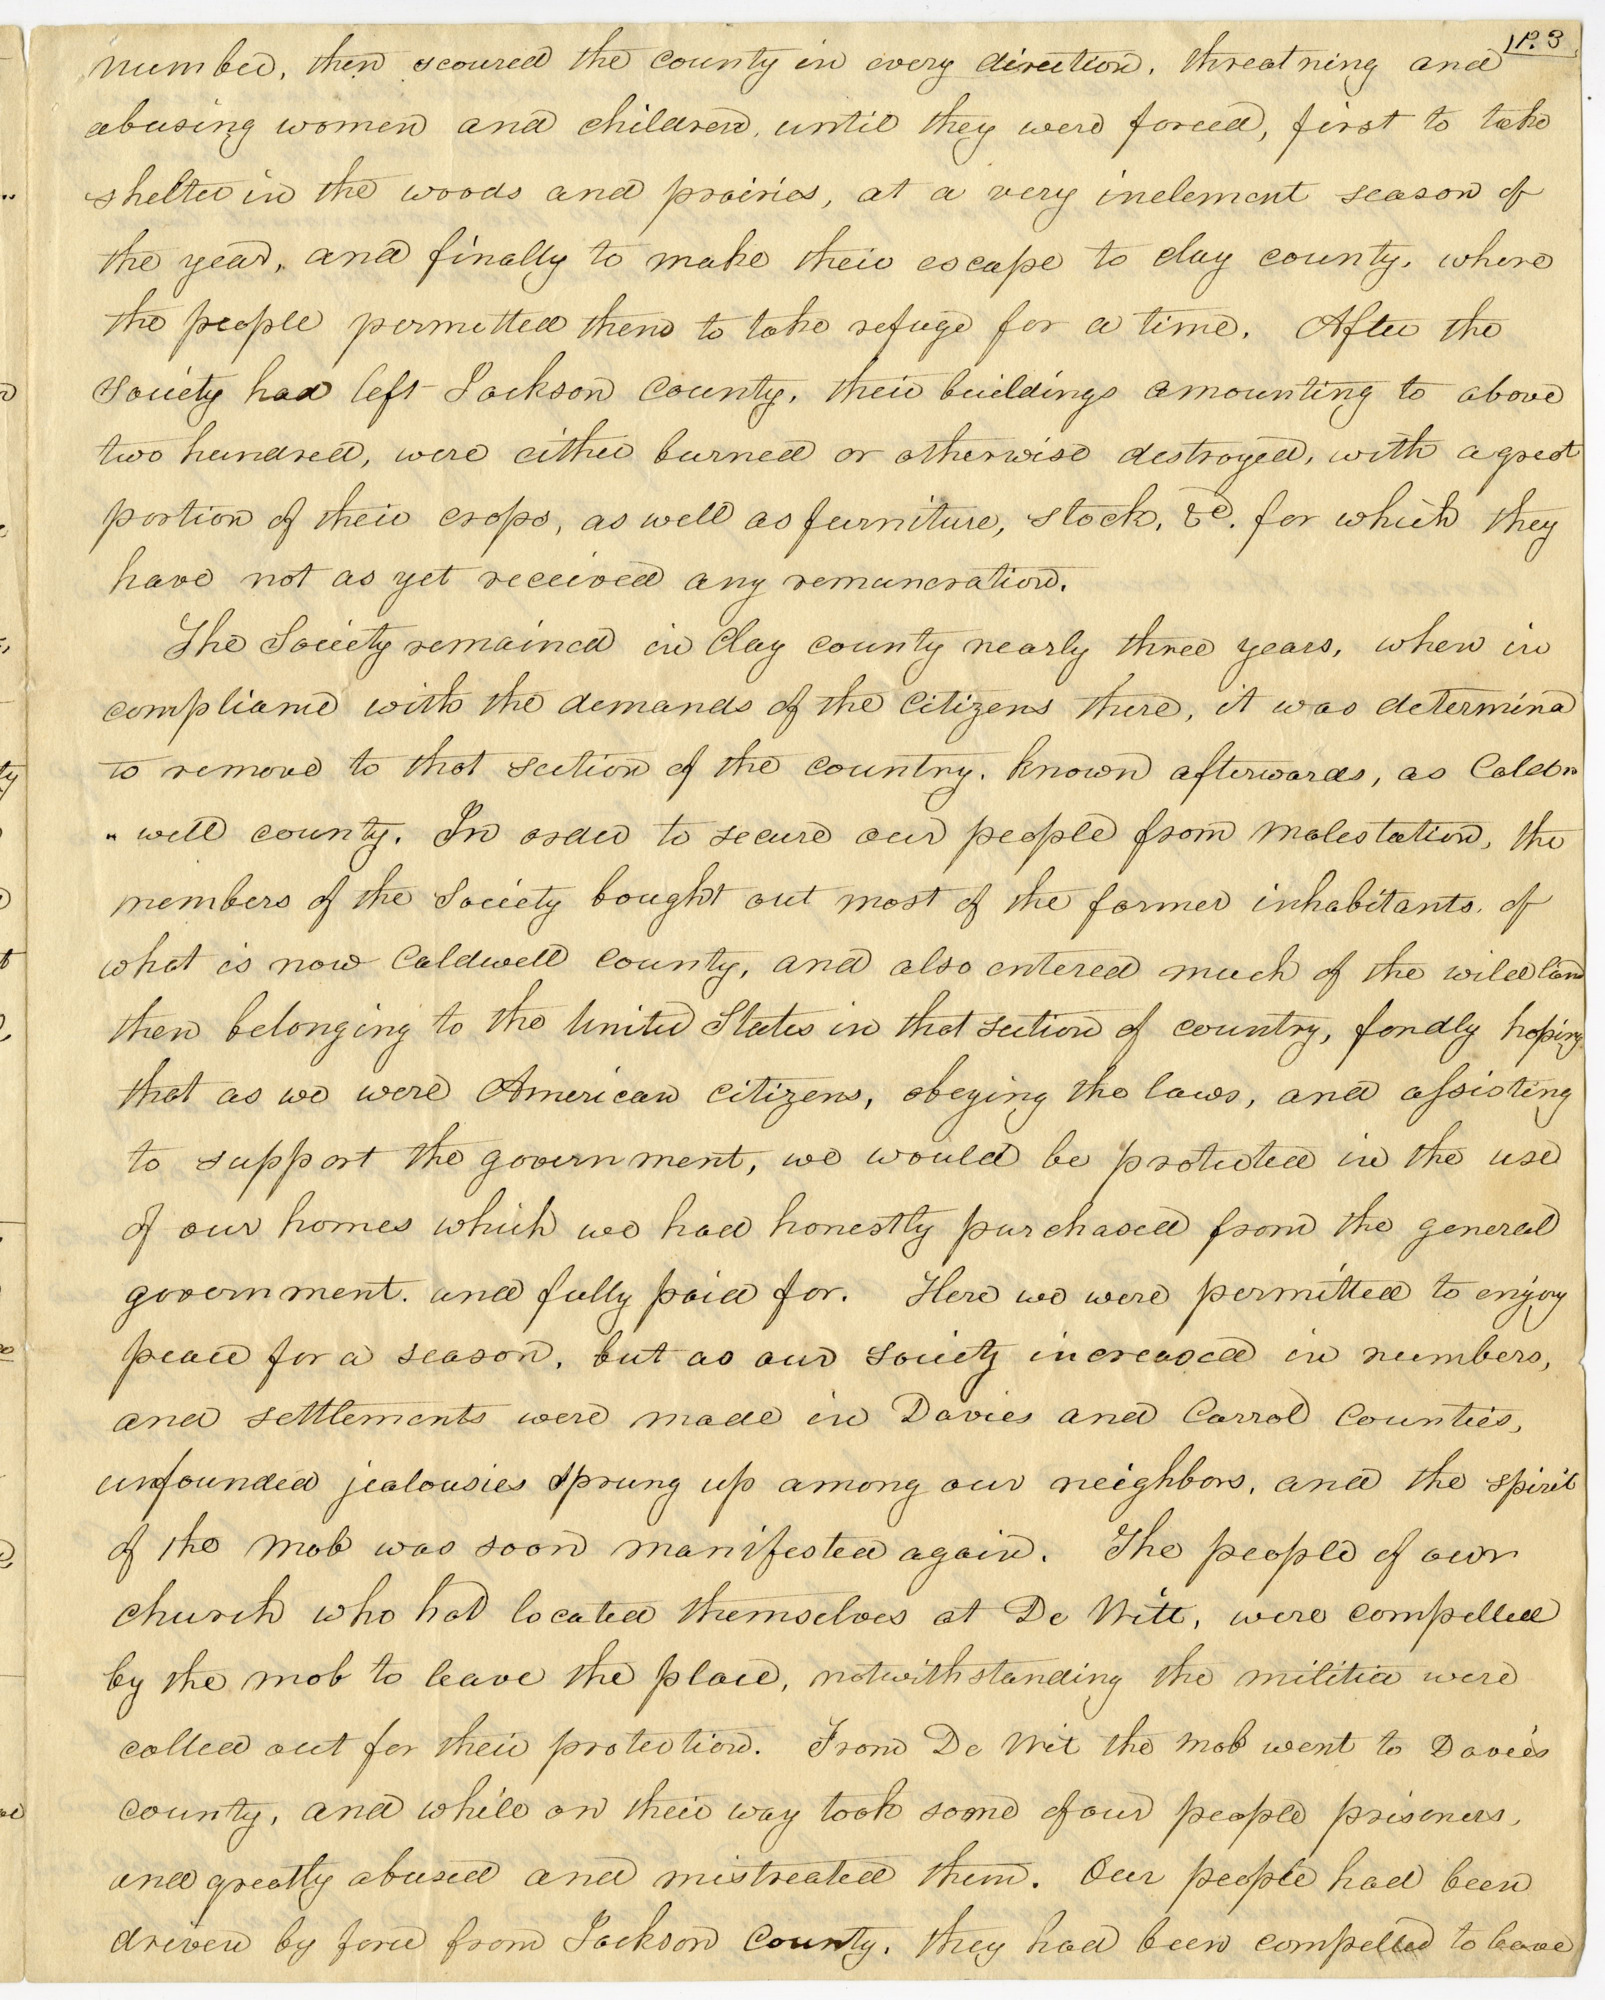 P. 3
number, then scoured the county in every direction, threatning and
abusing women and children, until they were forced, first to take
shelter in the woods and prairies, at a very inclement season of
the year, and finally to make their escape to clay county, where
the people permitted them to take refuge for a time. After the
Society had left Jackson County, their buildings amounting to above
two hundred, were either burned or otherwise destroyed, with a great
portion of their crops, as well as furniture, stock, &c. for which they
have not as yet received any remuneration.
The Society remained in Clay county nearly three years, when in
compliance with the demands of the Citizens there, it was determined
to remove to that section of the country, known afterwards, as Cald=
=well county. In order to secure our people from molestation, the
members of the Society bought out most of the former inhabitants, of
what is now Caldwell County, and also entered much of the wild land
then belonging to the United States in that section of country, fondly hoping
that as we were American citizens, obeying the laws, and assisting
to support the government, we would be protected in the use
of our homes which we had honestly purchased from the general
government, and fully paid for. Here we were permitted to enjoy
peace for a season, but as our society increased in numbers,
and settlements were made in Davies and Carrol Counties,
unfounded jealousies sprung up among our neighbors, and the spirit
of the mob was soon manifested again. The people of our
church who had located themselves at De Witt, were compelled
by the mob to leave the place, notwithstanding the militia were
called out for their protection. From De Wit the mob went to Davies
county, and while on their way took some of our people prisoners,
and greatly abused and mistreated them. Our people had been
driven by force from Jackson County, they had been compelled to leave